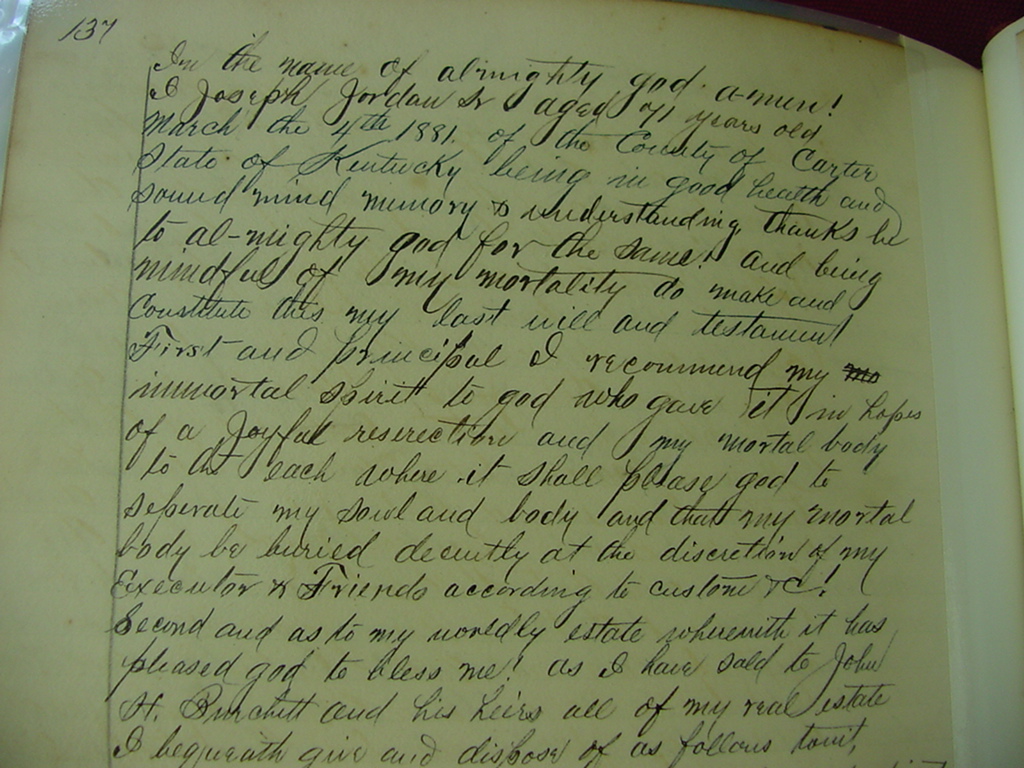 137
In the name of almighty god a-men!
I Joseph Jordan Sr aged 71 years old
March the 4th 1881. of the County of Carter
State of Kentucky being in good health and
sound mind memory & understanding thanks be
to al-mighty god for the same! and being
mindful of my mortality do make and
Constitute this my last will and testament
First and principal I recommend my
immortal spirit to god who gave it in hopes
of a Joyful reserection and my mortal body
to the each where it shall please god to
seperate my sowl and body and that my mortal
body be buried decently at the discretion of my
Executor & Friends according to custom &C!
Second and as to my worldly estate wherewith it has
pleased god to bless me! as I have sold to John
H. Burchett and his heirs all of my real estate
I bequeath give and dispose of as follows towit,